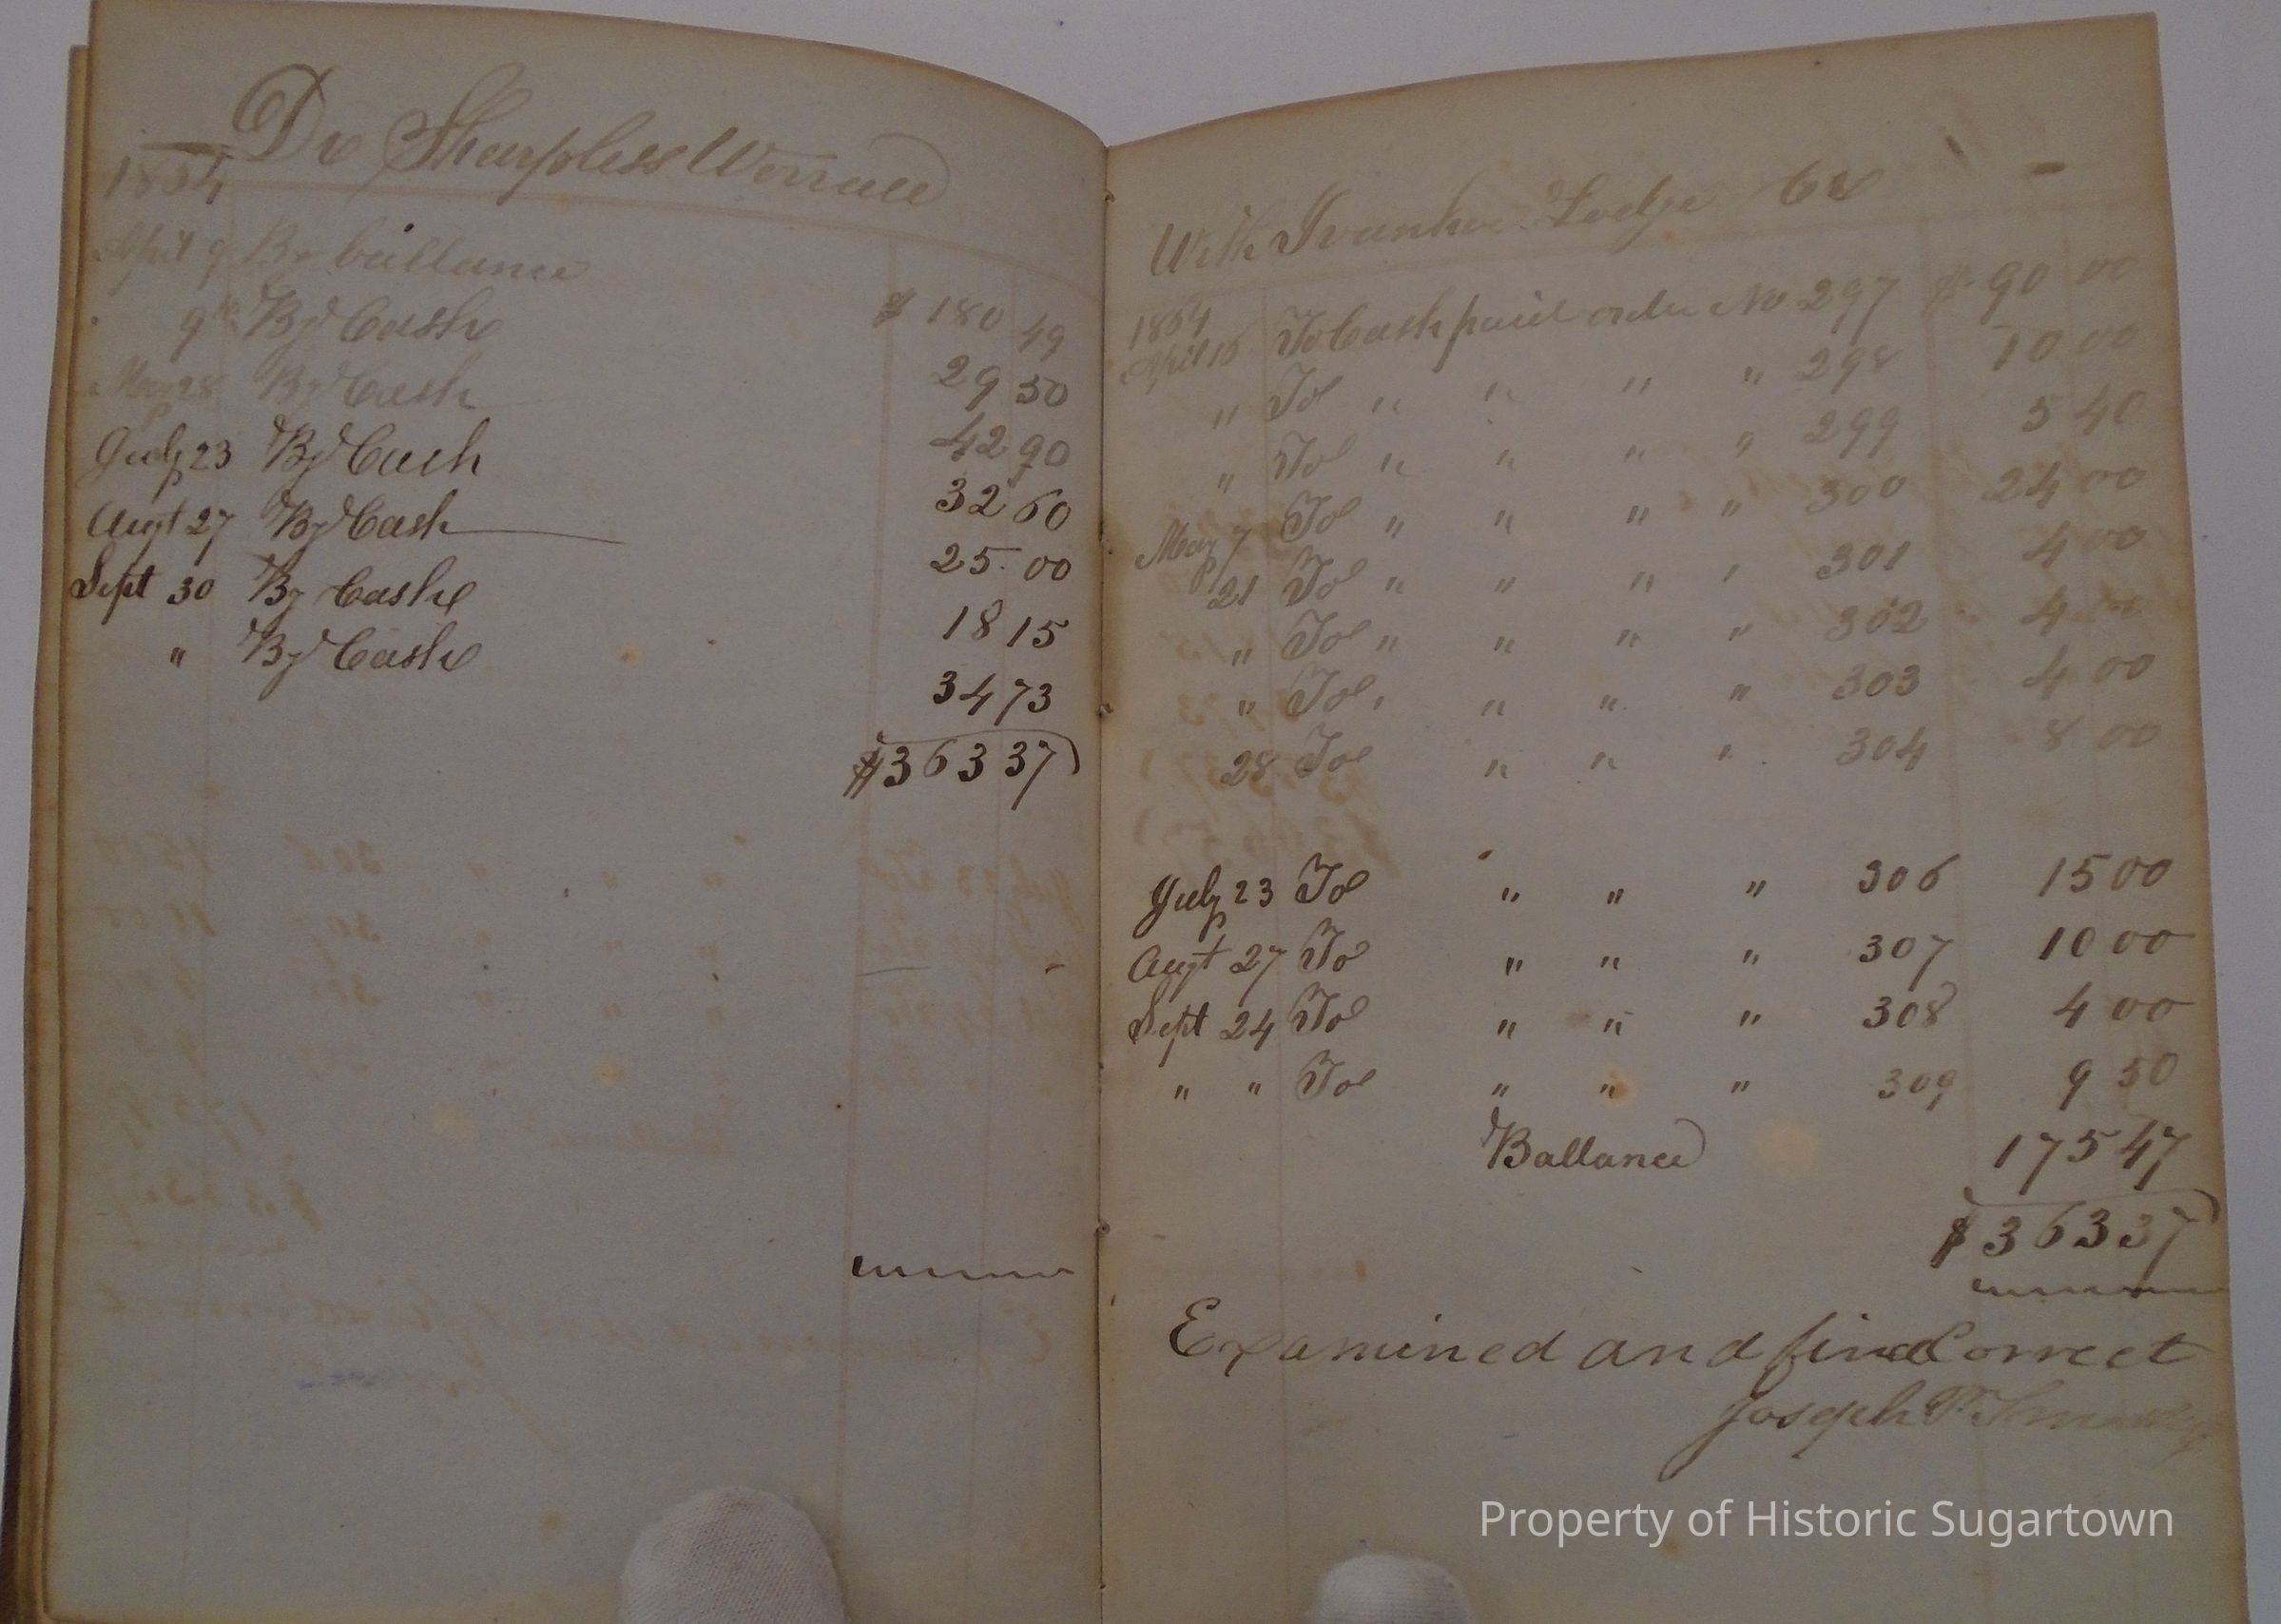 Dr Sharpless Worrall
1864
April 9 By ballance $ 180 49
9th By Cash 29 50
May 28 By Cash 42 90
July 23 By Cash 32 60
Augt 27 By Cash 25 00
Sept 30 By Cash 18 15
" By Cash 34 73
$363 37
With Ivanhoe Lodge Cr
1864
April 16 To Cash paid order No 297 $ 90 00
" To " " " " 298 10 00
" To " " " " 299 5 40
May 7 To " " " " 300 24 00
21 To " " " " 301 4 00
" To " " " " 302 4 00
" To " " " " 303 4 00
28 To " " " 304 8 00
July 23 To " " " 306 15 00
Augt 27 To " " " 307 10 00
Sept 24 To " " " 308 4 00
" " To " " " 309 9 50
Ballance 175 47
$ 363 37
Examined and find Correct
Joseph P
Property of Historic Sugartown